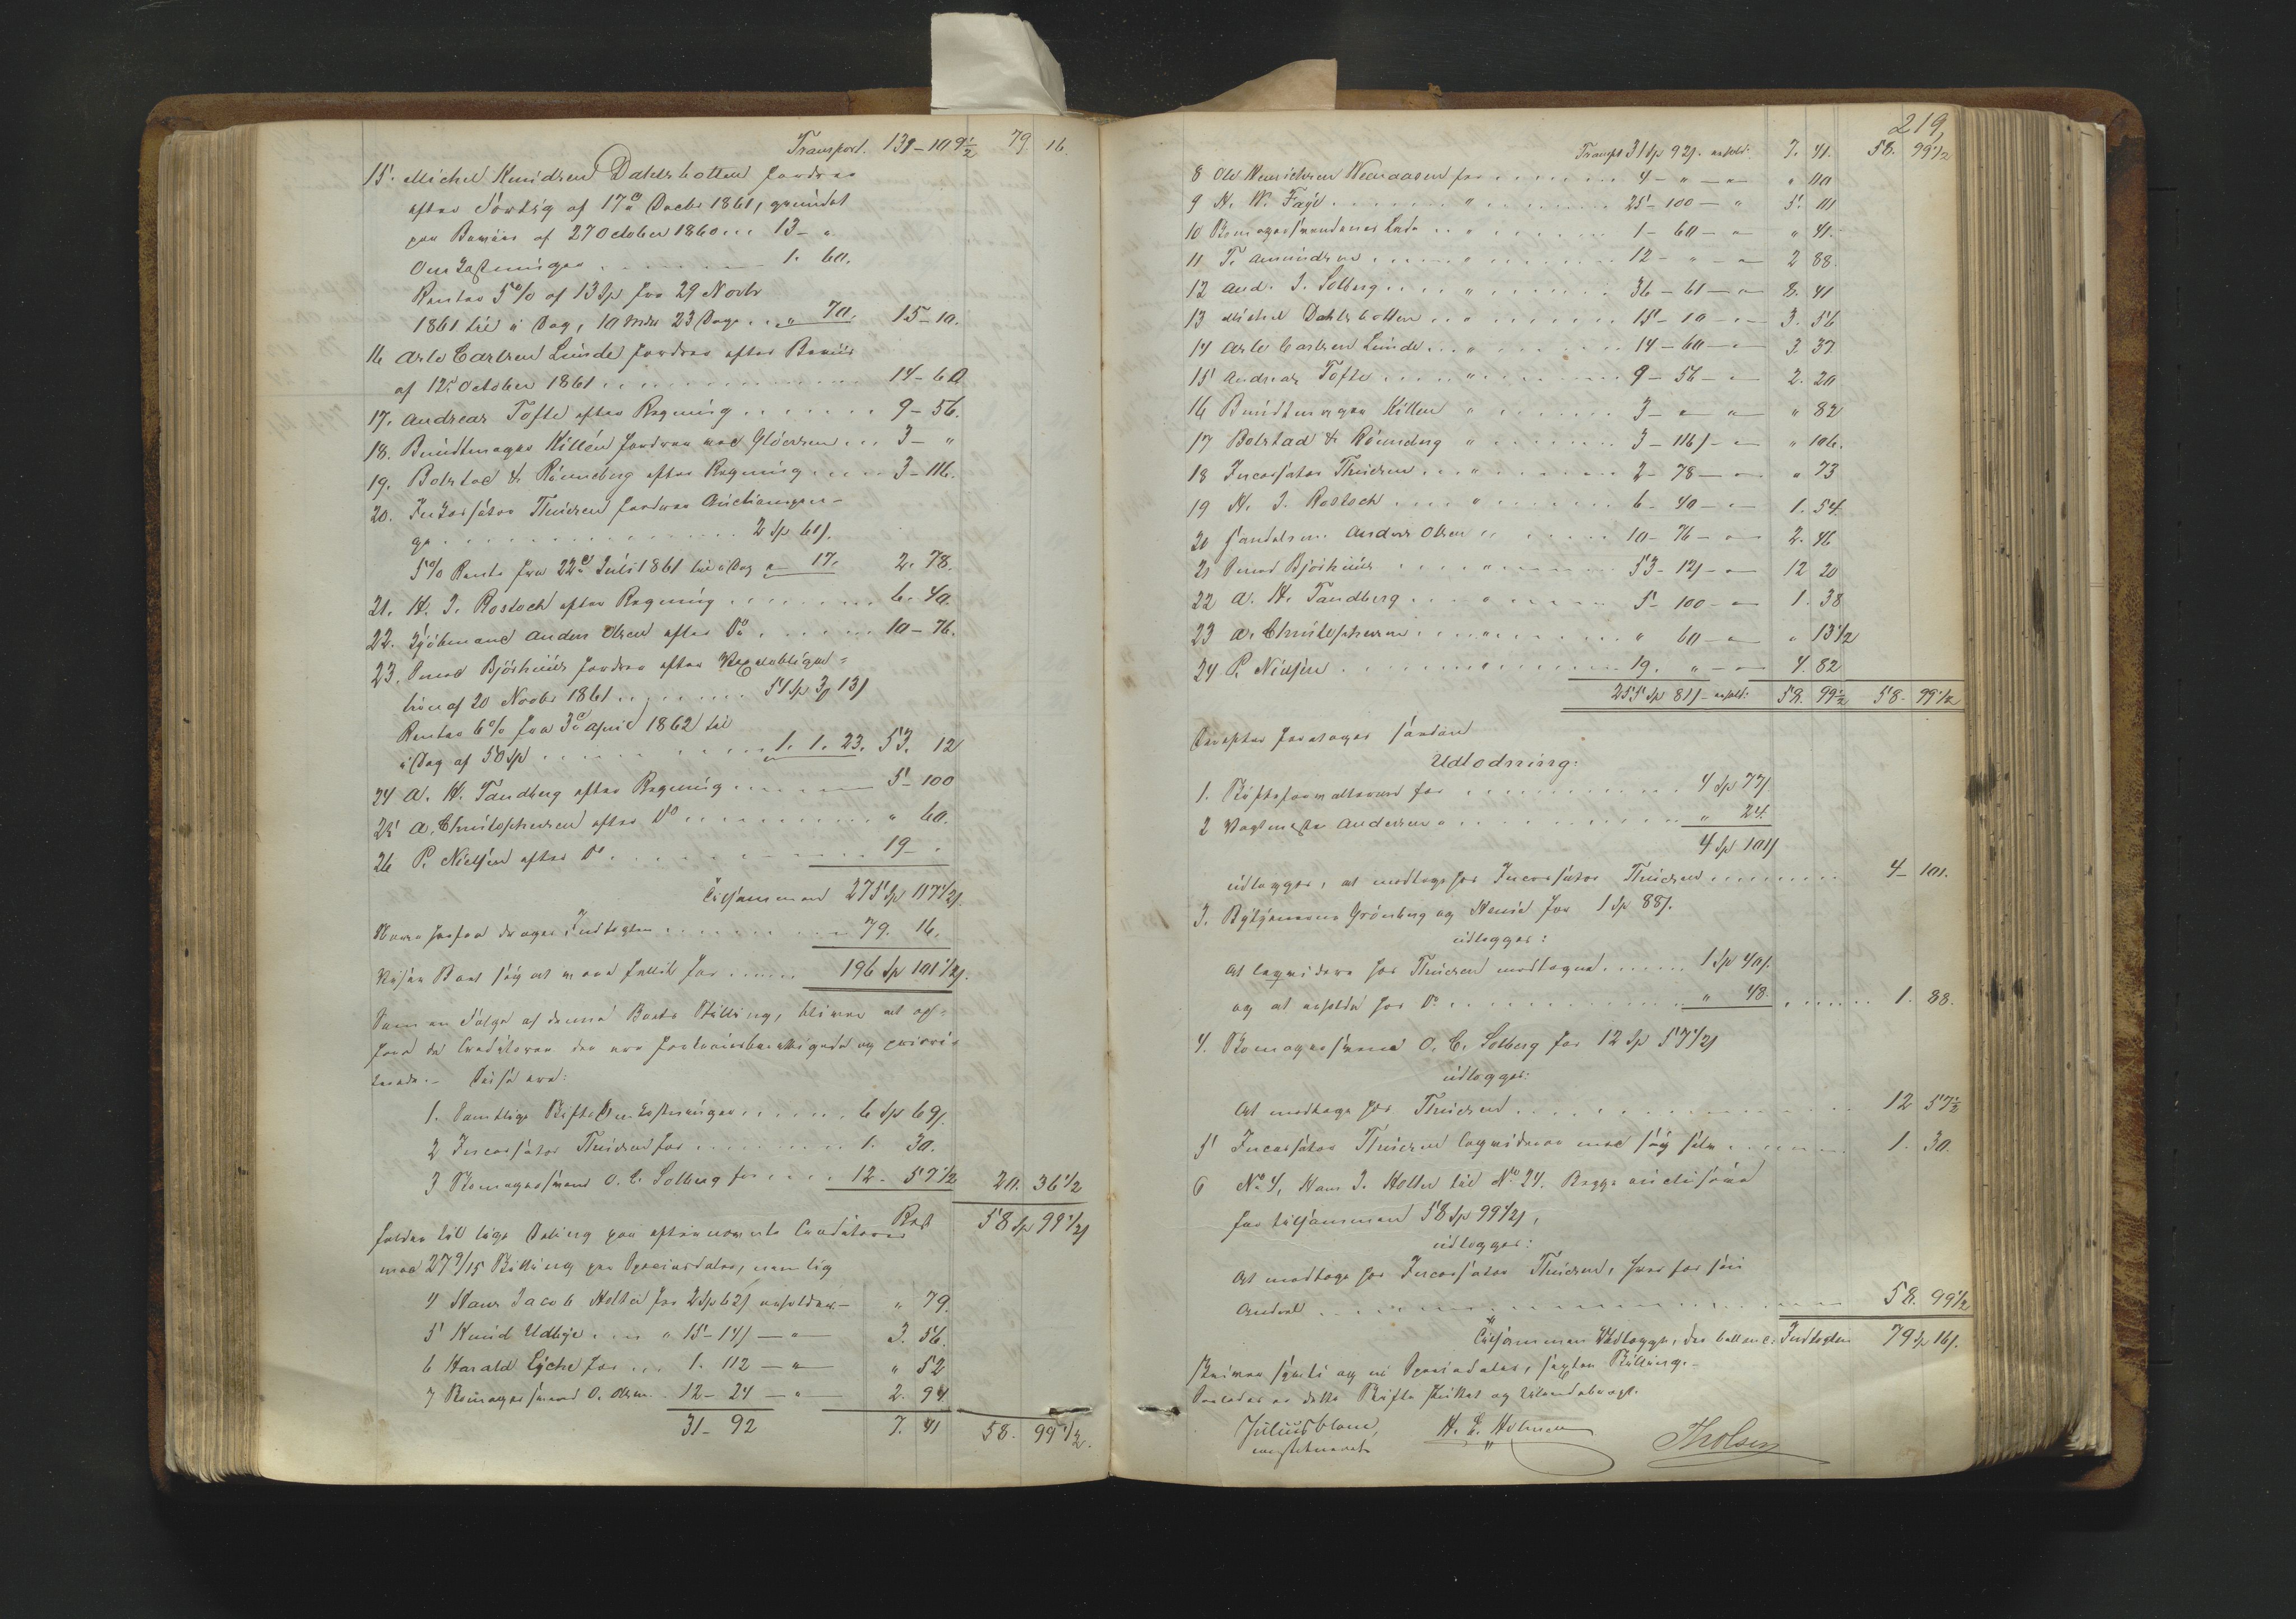 Transport. 139-109½ 79 16.
15. Michel Knudsen Dahlsbotten fordrer
efter Forlig af 17de Decbr 1861, grundet
paa Beviis af 27 October 1860 ... 13 - "
Omkostninger ... 1. 60.
Renter 5% af 13 Sp fra 29 Novbr
1861 til i Dag, 10 Mdr 23 Dage ... " 70. 15-10.
16 Arle Carlsen Lunde fordrer efter Beviis
af 12. October 1861 ... 14-60
17. Andreas Tofte efter Regning ... 9-56.
18. Bundtmager Killén fordrer 3- "
19. Bolstad & Rönneberg efter Regning ... 3-116.
20. Inkassator Thuesen fordrer Auctionspen-
ge ... 2 Sp 61ẞ.
5% Rente fra 22de Juli 1861 til i Dag " 17. 2. 78.
21. H. J. Rostoch efter Regning ... 6. 40.
22. Kjöbmand Anders Olsen efter Do ... 10-76.
23. Bjöshuus fordrer efter Vexelobliga-
tion af 20 Novbr 1861 ... 51 Sp 3ẞ 13ẞ
Renter 6% fra 3de April 1862 til
i Dag af 50 Sp ... 1. 1. 23. 53. 12
24 A. H. Tandberg efter Regning ... 5-100
25 A. Christophersen efter Do ... " 60.
26 P. Nielsen efter Do ... 19 - "
Tilsammen 275 Sp 117½ẞ.
drages Indtægten ... 79. 16.
Boet sig at være fallit for ... 196 Sp 101½ẞ.
Som en Fölge af denne Boets Stilling, bliver at op-
före de Creditorer der ere fortrinsberettigede og priori-
terede. - Disse ere:
1. Samtlige Skifteomkostninger ... 6 Sp 69ẞ.
2 Incassator Thuesen for ... 1. 30.
3 Skomagersvend O. C. Solberg for ... 12. 57½ 20. 36½
Rest 58 Sp 99½ẞ
falder til lige Deling paa efternævnte Creditorer
med 27 9/15 Skilling pr Speciedaler, nemlig
4 Hans Jacob Holter for 2 Sp 62ẞ erholder - " 79.
5 Knud Udbye ... " 15-14ẞ - " - 3. 56.
6 Harald Lyche for ... 1. 112 - " - " 52
7 Skomagersvend O. Olsen 12-24 - " - 2. 94
31-92 7. 41 58. 99½.
219,
Transpt 31 Sp 92ẞ erhold: 7. 41. 58. 99½
8 Ole Henrichsen for ... 4 - " - " - " 110
9 H. W. Faye ... " ... 25-100 - " 5. 111
10 Lade ... " ... 1-60 - " " 41.
11 T. Amundsen ... " ... 12 - " - " 2 88.
12 And. J. Solberg ... " ... 36-61 - " 8. 41
13 Michel Dahlsbotten ... " ... 15-10 - " 3. 56
14 Arle Carlsen Lunde ... " ... 14-60 - " 3. 37
15 Andreas Tofte ... " ... 9-56 - " 2. 20
16 Bundtmager Killen " ... 3 - " - " " 82
17 Bolstad & Rönneberg " ... 3-116ẞ - " " 106.
18 Incassator Thuesen ... " ... 2-78 - " " 73
19 H. J. Rostoch ... " ... 6-40 - " 1. 54.
20 Handelsm. Anders Olsen " ... 10-76 - " 2. 46
21 Bjöshuus ... " ... 53-12ẞ - " 12 20
22 A. H. Tandberg ... " ... 5-100 - " 1. 38
23 A. Christophersen ... " ... " 60 - " " 13½
24 P. Nielsen ... " ... 19. " - " 4. 82
255 Sp 81ẞ erhold: 58. 99½ 58. 99½
Derefter foretages saadan
Udlodning:
1. Skifteforvalteren for ... 4 Sp 77ẞ
2 Vagtmester Andersen " ... " 24.
4 Sp 101ẞ
udlægges, at modtage hos Incassator Thuesen ... 4-101.
3. Grönberg og for 1 Sp 88ẞ.
udlægges:
At liqvidere hos Thuesen modtagne ... 1 Sp 40ẞ.
og at erholde hos Do ... " 48. ... 1. 88.
4. Skomagersvend O. C. Solberg for 12 Sp 57½ẞ
udlægges:
At modtage hos Thuesen ... 12 57½
5 Incassator Thuesen liqviderer med sig selv ... 1. 30.
6 No 4, Hans J. Holter til No 24. Begge inclusive
for tilsammen 58 Sp 99½ẞ,
udlægges:
At modtage hos Incassator Thuesen, hver for sin
Andeel ... 58. 99½
Tilsammen Udlægget, der ball. med Indtægten 79 Sp 16ẞ.
skriver sytti og ni Speciedaler, sexten Skilling.
Saaledes er dette Skifte sluttet og tilendebragt.
Julius Blom, H. E. Holmen JHolsen
constitueret